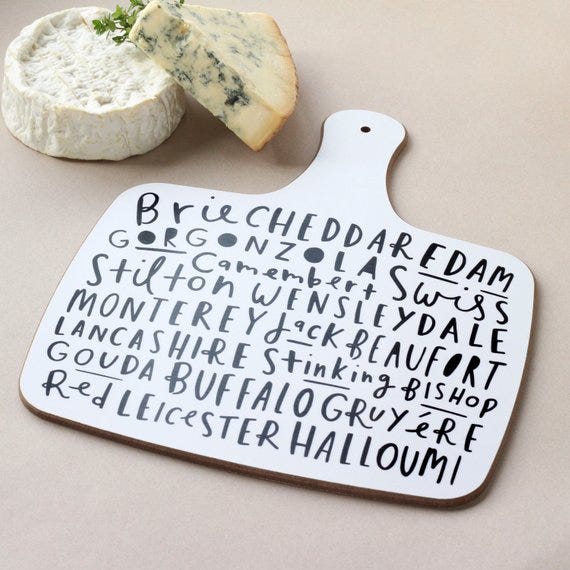 Brie CHEDDAR EDAM
GORGONZOLA Swiss
Stilton Camembert WENSLEYDALE
MONTEREY Jack BEAUFORT
LANCASHIRE Stinking BISHOP
GOUDA BUFFALO GRuYéRE
Red LEIceSTER HALLOUMI